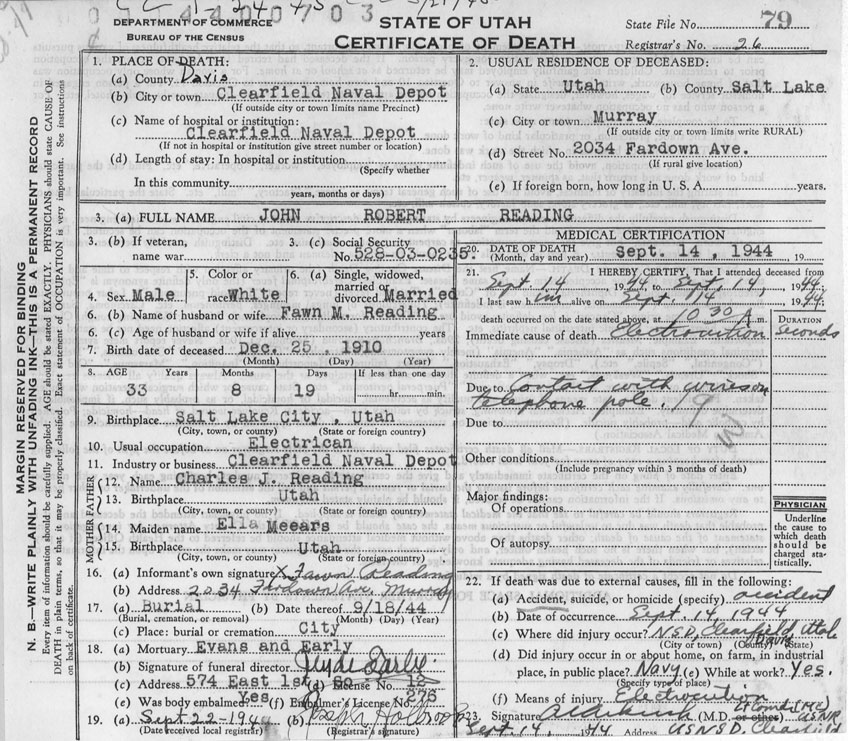 DEPARTMENT OF COMMERCE
BUREAU OF THE CENSUS
STATE OF UTAH
CERTIFICATE OF DEATH
State File No. 79
Registrar's No. 26
MARGIN RESERVED FOR BINDING
N. B.—WRITE PLAINLY WITH UNFADING INK—THIS IS A PERMANENT RECORD
Every item of information should be carefully supplied. AGE should be stated EXACTLY. PHYSICIANS should state CAUSE OF
DEATH in plain terms, so that it may be properly classified. Exact statement of OCCUPATION is very important. See instructions
on back of certificate.
1. PLACE OF DEATH:
(a) County Davis
(b) City or town Clearfield Naval Depot
(If outside city or town limits name Precinct)
(c) Name of hospital or institution:
Clearfield Naval Depot
(If not in hospital or institution give street number or location)
(d) Length of stay: In hospital or institution
(Specify whether
In this community
years, months or days)
2. USUAL RESIDENCE OF DECEASED:
(a) State Utah (b) County Salt Lake
(c) City or town Murray
(If outside city or town limits write RURAL)
(d) Street No. 2034 Fardown Ave.
(If rural give location)
(e) If foreign born, how long in U. S. A. years.
3. (a) FULL NAME JOHN ROBERT READING
3. (b) If veteran, name war
3. (c) Social Security No. 528-03-0235.
4. Sex Male
5. Color or race White
6. (a) Single, widowed, married or divorced Married
6. (b) Name of husband or wife Fawn M. Reading
6. (c) Age of husband or wife if alive years
7. Birth date of deceased Dec. 25, 1910
(Month) (Day) (Year)
8. AGE Years Months Days If less than one day
33 8 19 hr. min.
9. Birthplace Salt Lake City, Utah
(City, town, or county) (State or foreign country)
10. Usual occupation Electrican
11. Industry or business Clearfield Naval Depot
FATHER
12. Name Charles J. Reading
13. Birthplace Utah
(City, town, or county) (State or foreign country)
MOTHER
14. Maiden name Ella Meears
15. Birthplace Utah
(City, town, or county) (State or foreign country)
16. (a) Informant's own signature X Fawn Reading
(b) Address 2034 Fardown Ave. Murray
17. (a) Burial (b) Date thereof 9/18/44
(Burial, cremation, or removal) (Month) (Day) (Year)
(c) Place: burial or cremation City
18. (a) Mortuary Evans and Early
(b) Signature of funeral director Clyde Early
(c) Address 574 East 1st So. (d) License No. 12
(e) Was body embalmed? Yes (f) Embalmer's License No. 276
19. (a) Sept 22-1944 (b) Joseph Holbrook
(Date received local registrar) (Registrar's signature)
MEDICAL CERTIFICATION
20. DATE OF DEATH Sept. 14, 1944 19
(Month, day and year)
21. I HEREBY CERTIFY, That I attended deceased from
Sept 14, 1944 to Sept. 14, 1944.
I last saw him alive on Sept. 14 1944
death occurred on the date stated above, at 10 30 A m.
DURATION
Immediate cause of death Electrocution Seconds
Due to Contact with wires on
telephone pole. 19
Due to
Other conditions
(Include pregnancy within 3 months of death)
Major findings:
Of operations
Of autopsy
PHYSICIAN
Underline
the cause to
which death
should be
charged sta-
tistically.
22. If death was due to external causes, fill in the following:
(a) Accident, suicide, or homicide (specify) accident
(b) Date of occurrence Sept. 14, 1944
(c) Where did injury occur? N.S.D. Clearfield Davis Utah
(City or town) (County) (State)
(d) Did injury occur in or about home, on farm, in industrial
place, in public place? Navy (e) While at work? Yes.
(Specify type of place)
(f) Means of injury Electrocution
23. Signature (M.D. or other) Lt Comdr (MC) USNR
Sept. 14, 1944 Address USNSD, Clearfield